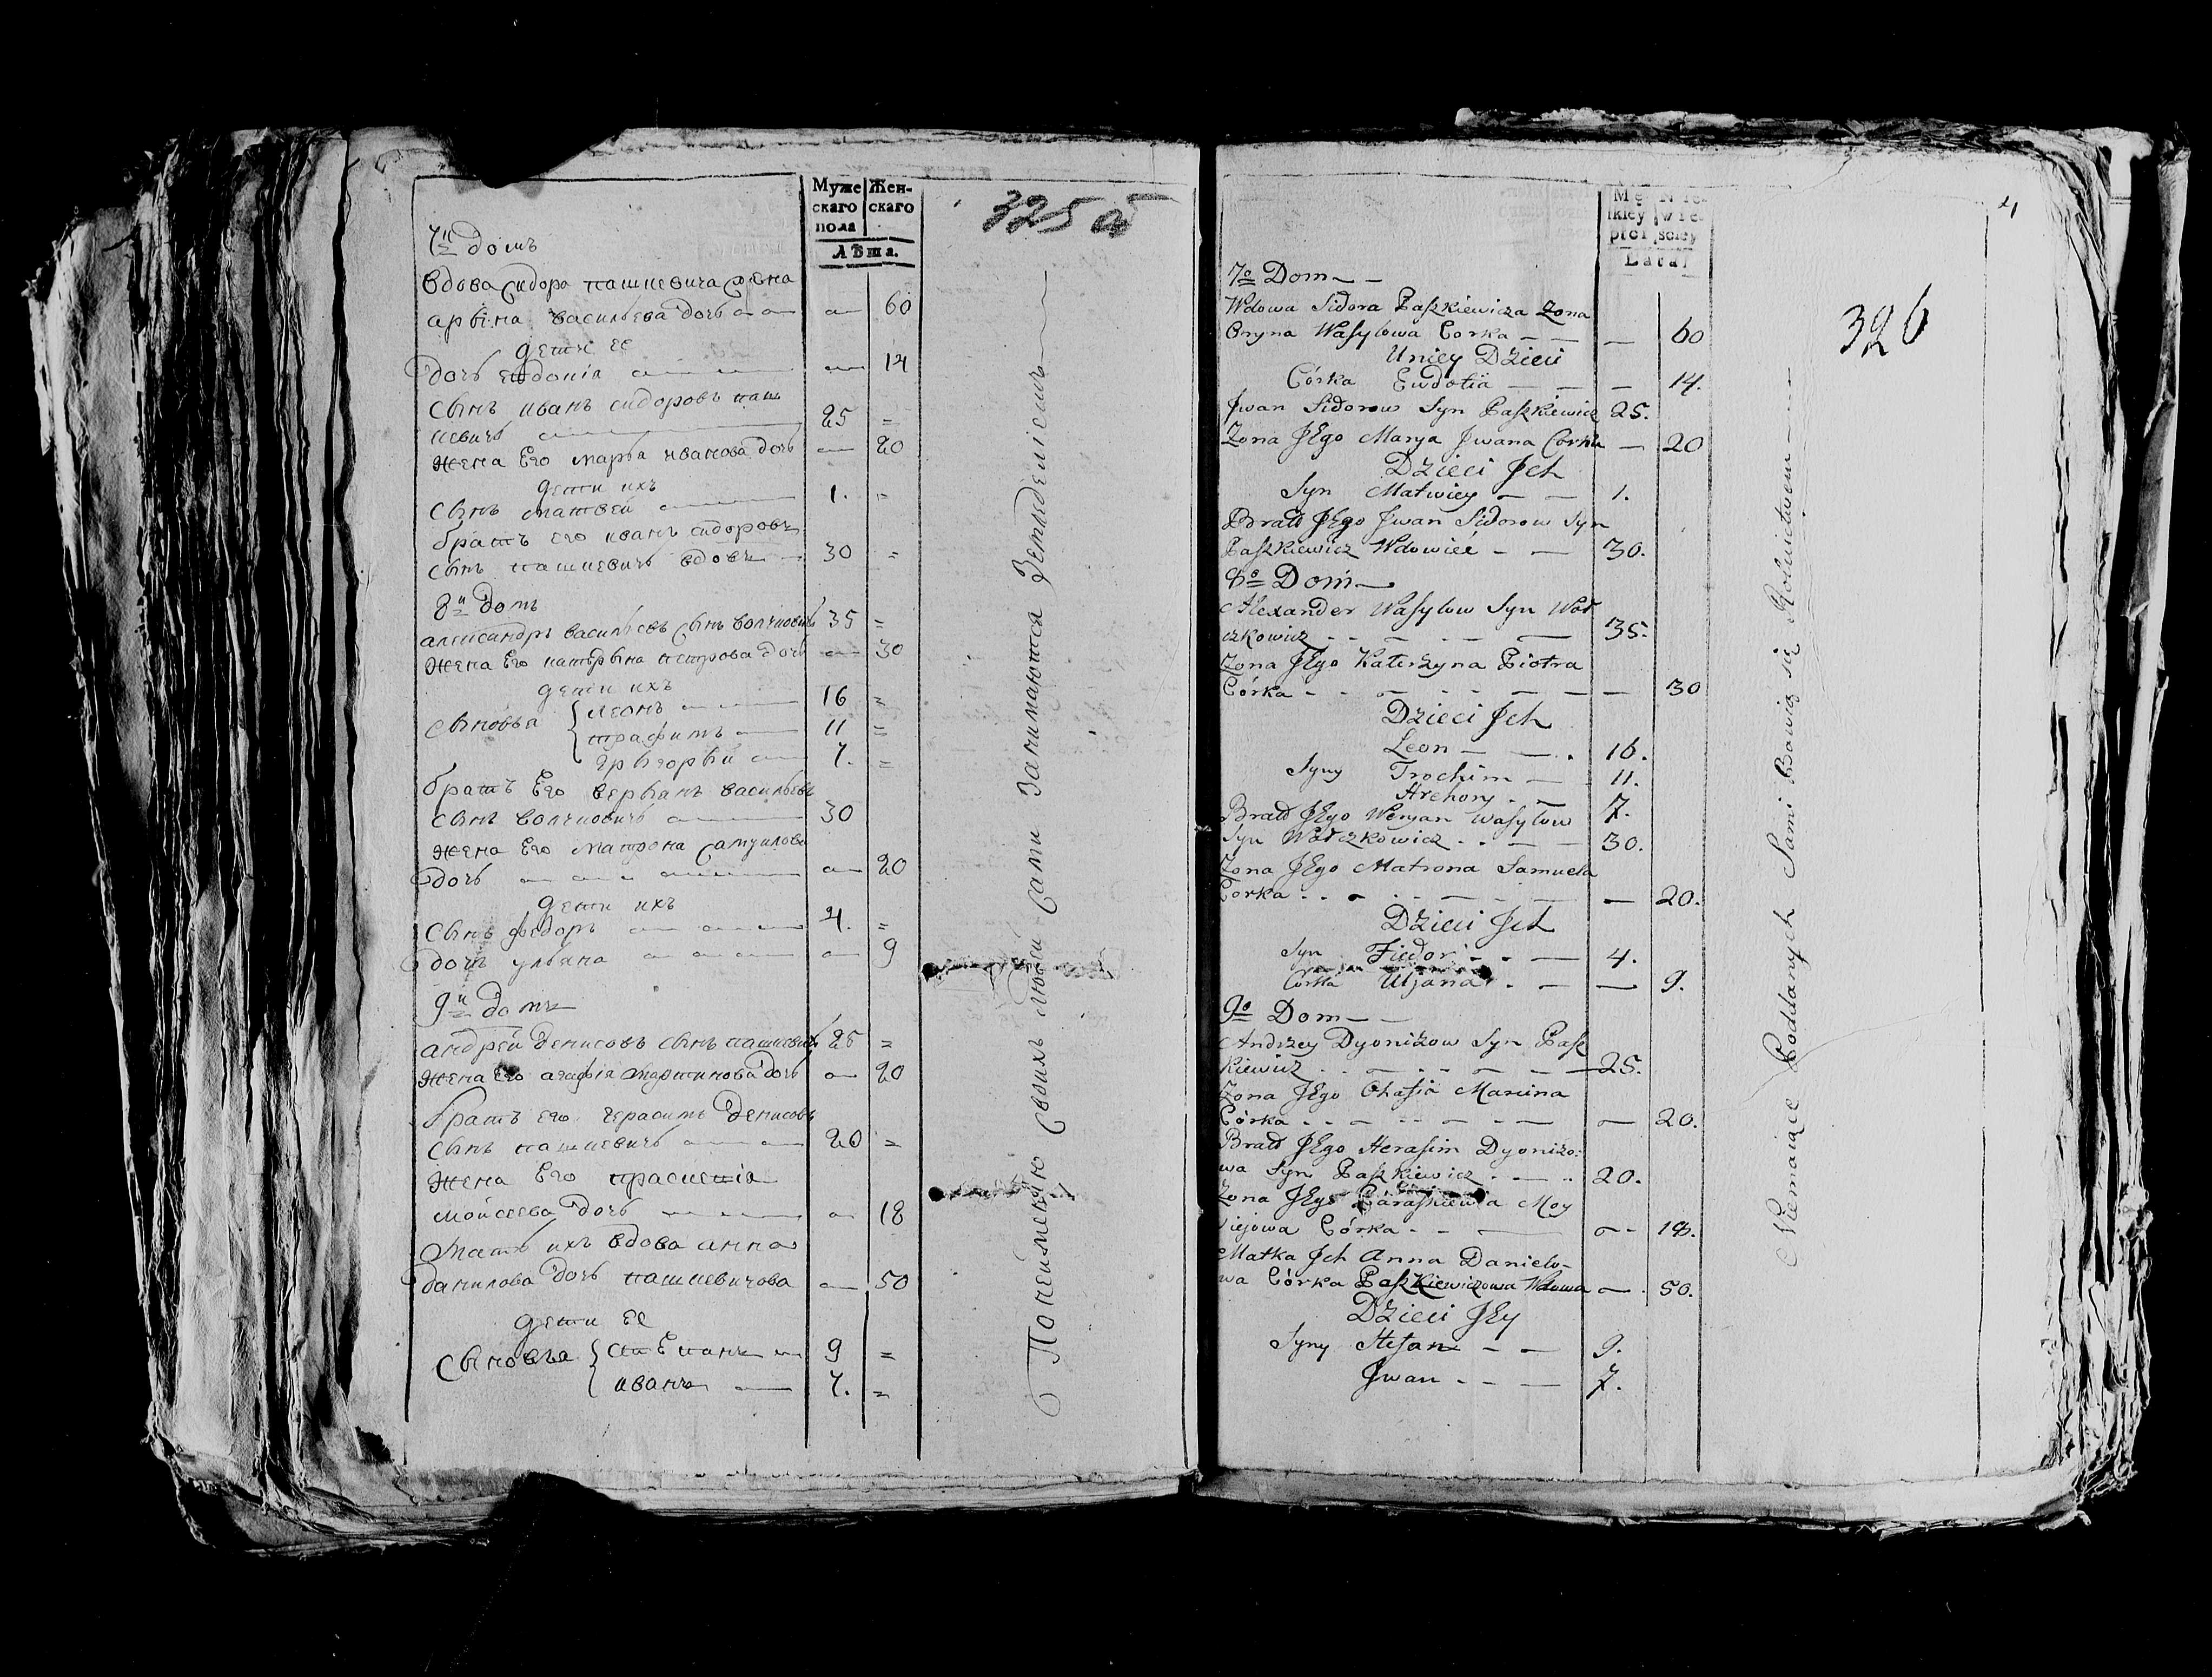 Муже
скаго
пола
Жен-
скаго
Лѣта.
325 об
7й домъ
вдова сидора пашкевича жена
арына васильева дочь — 60
дети ее
дочь евдокія — 14
сынъ иванъ сидоровъ паш
кевичь 25 =
жена Его марья иванова дочь — 20
дети ихъ
сынъ матвей 1. =
братъ его иванъ сидоровъ
сынъ пашкевичь вдовъ 30 =
8й домъ
александръ васильевъ сынъ волчковичь 35 =
жена Его катерына петрова дочь — 30
дети ихъ
сыновья { леонъ 16 =
трафимъ 11 =
грыгорый 7. =
братъ Его верьянъ васильевъ
сынъ волчковичь 30
жена Его матрона самуилова
дочь — 20
дети ихъ
сынъ федоръ 4. =
дочь ульяна — 9
9й домъ
андрей денисовъ сынъ пашкевичь 25 =
жена Его агафія мартинова дочь — 20
братъ его герасимъ денисовъ
сынъ пашкевичь 20 =
жена Его праскевія
мойсеева дочь — 18
мать ихъ вдова анна
данилова дочь пашкевичова — 50
дети ее
сыновья { степанъ 9 =
иванъ 7. =
По неимению своихъ людей сами занимаются земледелиемъ
Mę
skiey
płci
Nie-
wie-
sciey
Lata
4
326
7o Dom —
Wdowa Sidora Paszkiewicza Zona
Oryna Wasylowa Corka — — 60
Uniey Dzieci
Córka Ewdotia — — 14.
Jwan Sidorow Syn Paszkiewicz 25.
Zona JEgo Marya Jwana Corka — 20
Dzieci Jch
Syn Matwiey — — 1.
Bratt JEgo Jwan Sidorow Syn
Paszkiewicz Wdowiec — — 30.
8o Dom —
Alexander Wasylow Syn Woł
czkowicz 35.
Zona JEgo Katerzyna Piotra
Córka — 30
Dzieci Jch
Leon — 16.
Syny Trochim — 11.
Hrehory 7.
Bratt JEgo Weryan Wasylow
Syn Wołczkowicz 30.
Zona JEgo Matrona Samuela
Corka — 20.
Dzieci Jch
Syn Fiedor — 4.
Córka Uljana — 9.
9o Dom —
Andrzey Dyonizow Syn Pasz
kiewicz — 25.
Zona JEgo Ohafia Marcina
Córka — 20.
Bratt JEgo Herasim Dyonizo:
wa Syn Paszkiewicz 20.
Zona JEgo Paraskiewia Moy
siejowa Córka — 18.
Matka Jch Anna Danielo-
wa Córka Paszkiewiczowa Wdowa — 50.
Dzieci JEy
Syny Stefan — 9.
Jwan — 7.
Niemaiące Poddanych Sami Bawią się Rolnictwem